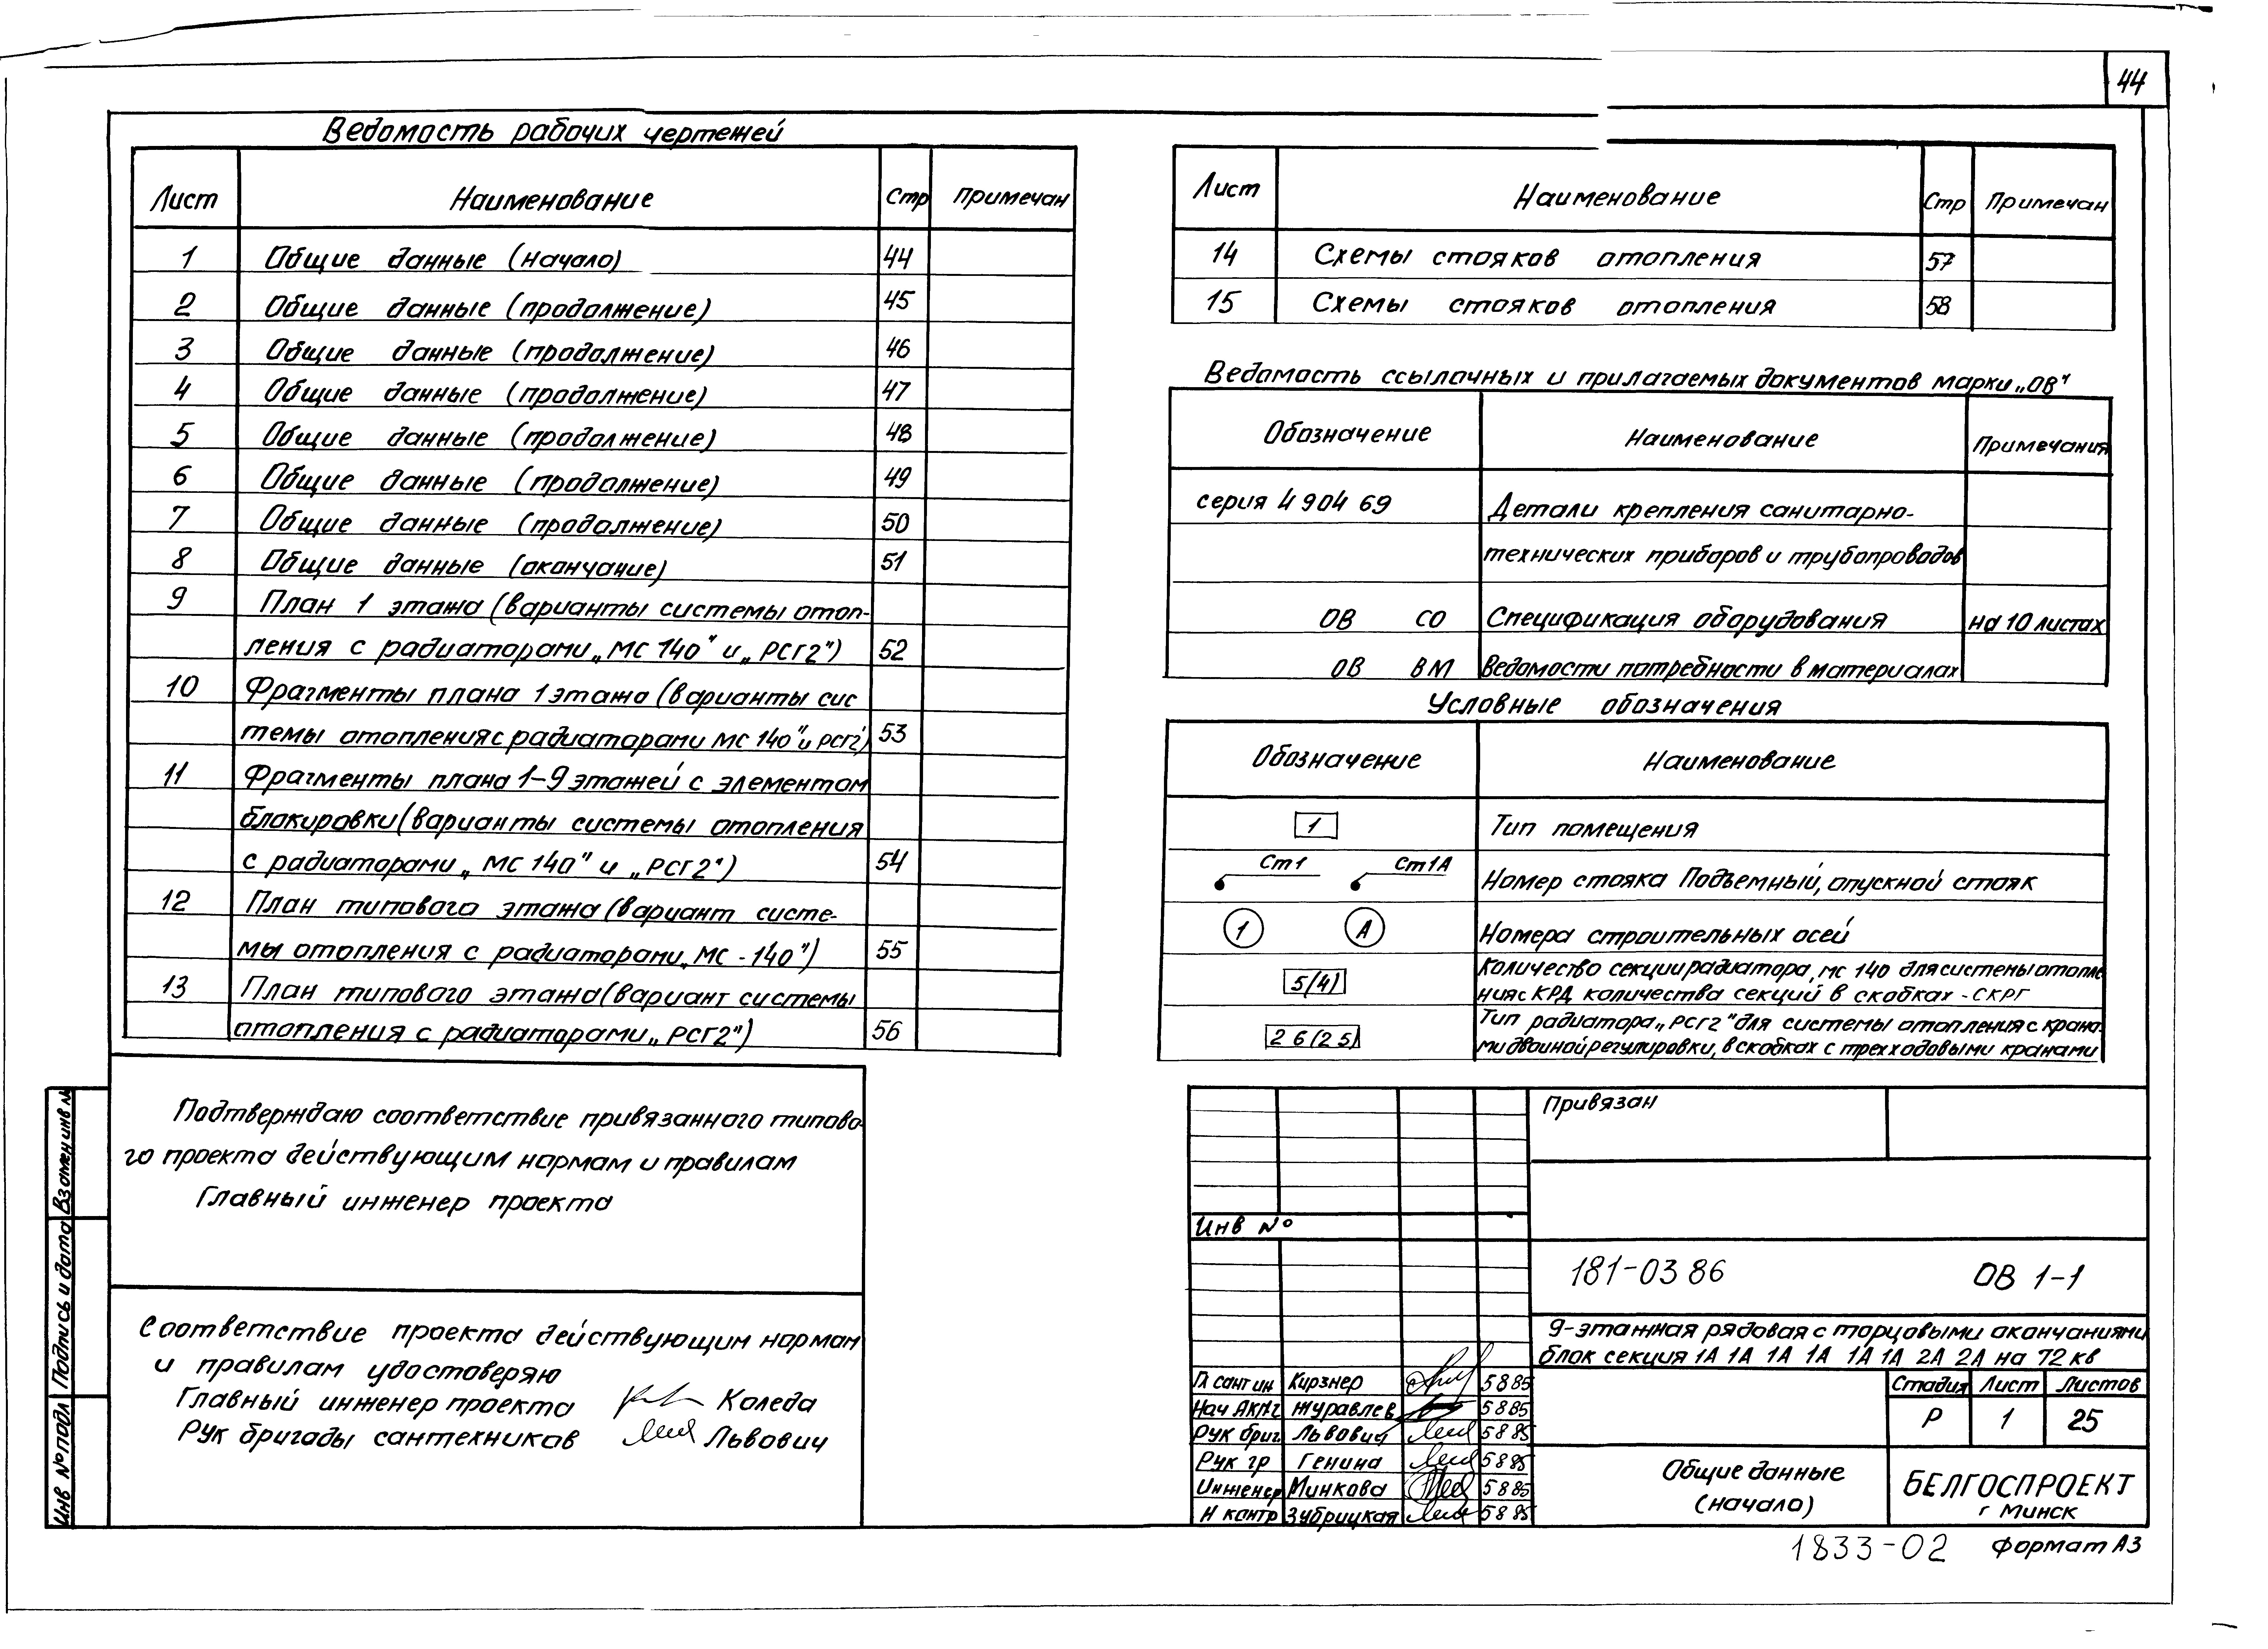 44
Ведомость рабочих чертежей
Лист Наименование Стр Примечан
1 Общие данные (начало) 44
2 Общие данные (продолжение) 45
3 Общие данные (продолжение) 46
4 Общие данные (продолжение) 47
5 Общие данные (продолжение) 48
6 Общие данные (продолжение) 49
7 Общие данные (продолжение) 50
8 Общие данные (окончание) 51
9 План 1 этажа (варианты системы отоп-
ления с радиаторами „МС 140" и „РСГ2") 52
10 Фрагменты плана 1 этажа (варианты сис
темы отопления с радиаторами МС 140" и РСГ2) 53
11 Фрагменты плана 1-9 этажей с элементом
блокировки (варианты системы отопления
с радиаторами „МС 140" и „РСГ2") 54
12 План типового этажа (вариант систе-
мы отопления с радиаторами „МС-140") 55
13 План типового этажа (вариант системы
отопления с радиаторами „РСГ2") 56
Лист Наименование Стр Примечан
14 Схемы стояков отопления 57
15 Схемы стояков отопления 58
Ведомость ссылочных и прилагаемых документов марки „ОВ"
Обозначение Наименование Примечания
серия 4 904 69 Детали крепления санитарно-
технических приборов и трубопроводов
ОВ СО Спецификация оборудования на 10 листах
ОВ ВМ Ведомости потребности в материалах
Условные обозначения
Обозначение Наименование
1 Тип помещения
Ст1 Ст1А Номер стояка Подъемный, опускной стояк
1 А Номера строительных осей
5(4) Количество секции радиатора „МС 140 для системы отопле
ния с КРД количества секций в скобках - СКРГ
26(25) Тип радиатора „РСГ2" для системы отопления с крана-
ми двойной регулировки, в скобках с трехходовыми кранами
Подтверждаю соответствие привязанного типово-
го проекта действующим нормам и правилам
Главный инженер проекта
Соответствие проекта действующим нормам
и правилам удостоверяю
Главный инженер проекта Коледа
Рук бригады сантехников Львович
Инв № подл Подпись и дата Взамен инв №
Привязан
Инв №
181-03 86 ОВ 1-1
9-этажная рядовая с торцовыми окончаниями
блок секция 1А 1А 1А 1А 1А 1А 2А 2А на 72 кв
Гл сант ин Кирзнер 5 8 85
Нач АКМ2 Журавлев 5 8 85
Рук бриг Львович 5 8 85
Рук гр Генина 5 8 85
Инженер Минкова 5 8 85
Н контр Зубрицкая 5 8 85
Стадия Лист Листов
Р 1 25
Общие данные
(начало)
БЕЛГОСПРОЕКТ
г Минск
1833-02 Формат А3